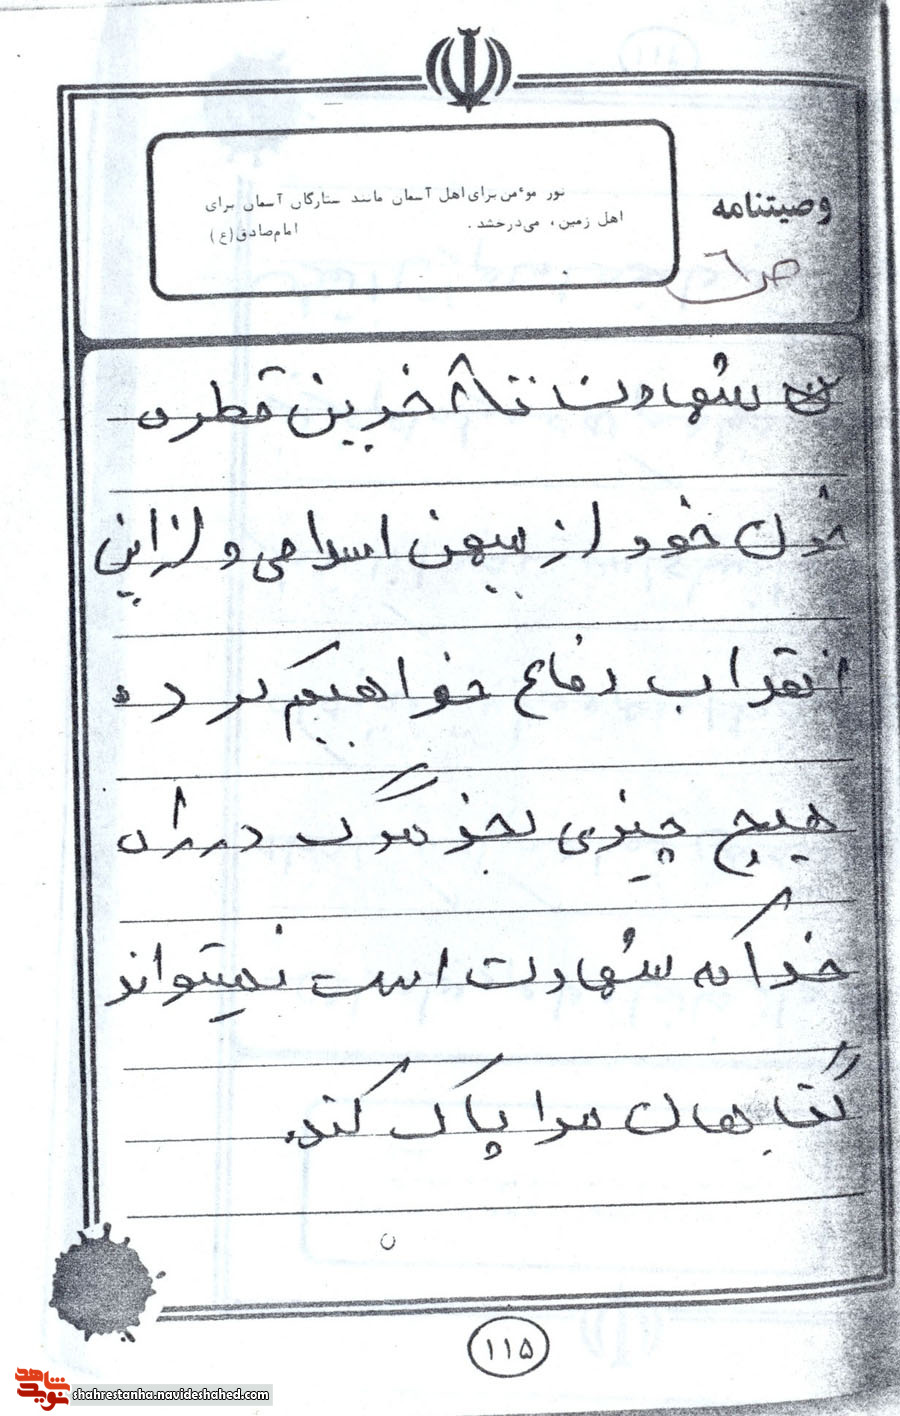 وصیتنامه
نور موءمن برای اهل آسمان مانند ستارگان آسمان برای
اهل زمین، می‌درخشد.
امام صادق (ع)
ص ٦
شهادت تا آخرین قطره
خون خود از میهن اسلامی و از این
انقلاب دفاع خواهیم کرد
هیچ چیزی بخز مرگ در راه
خدا که شهادت است نمیتواند
گناهان مرا پاک کند.
۱۱۵
نوید شاهد
shahrestanha.navideshahed.com